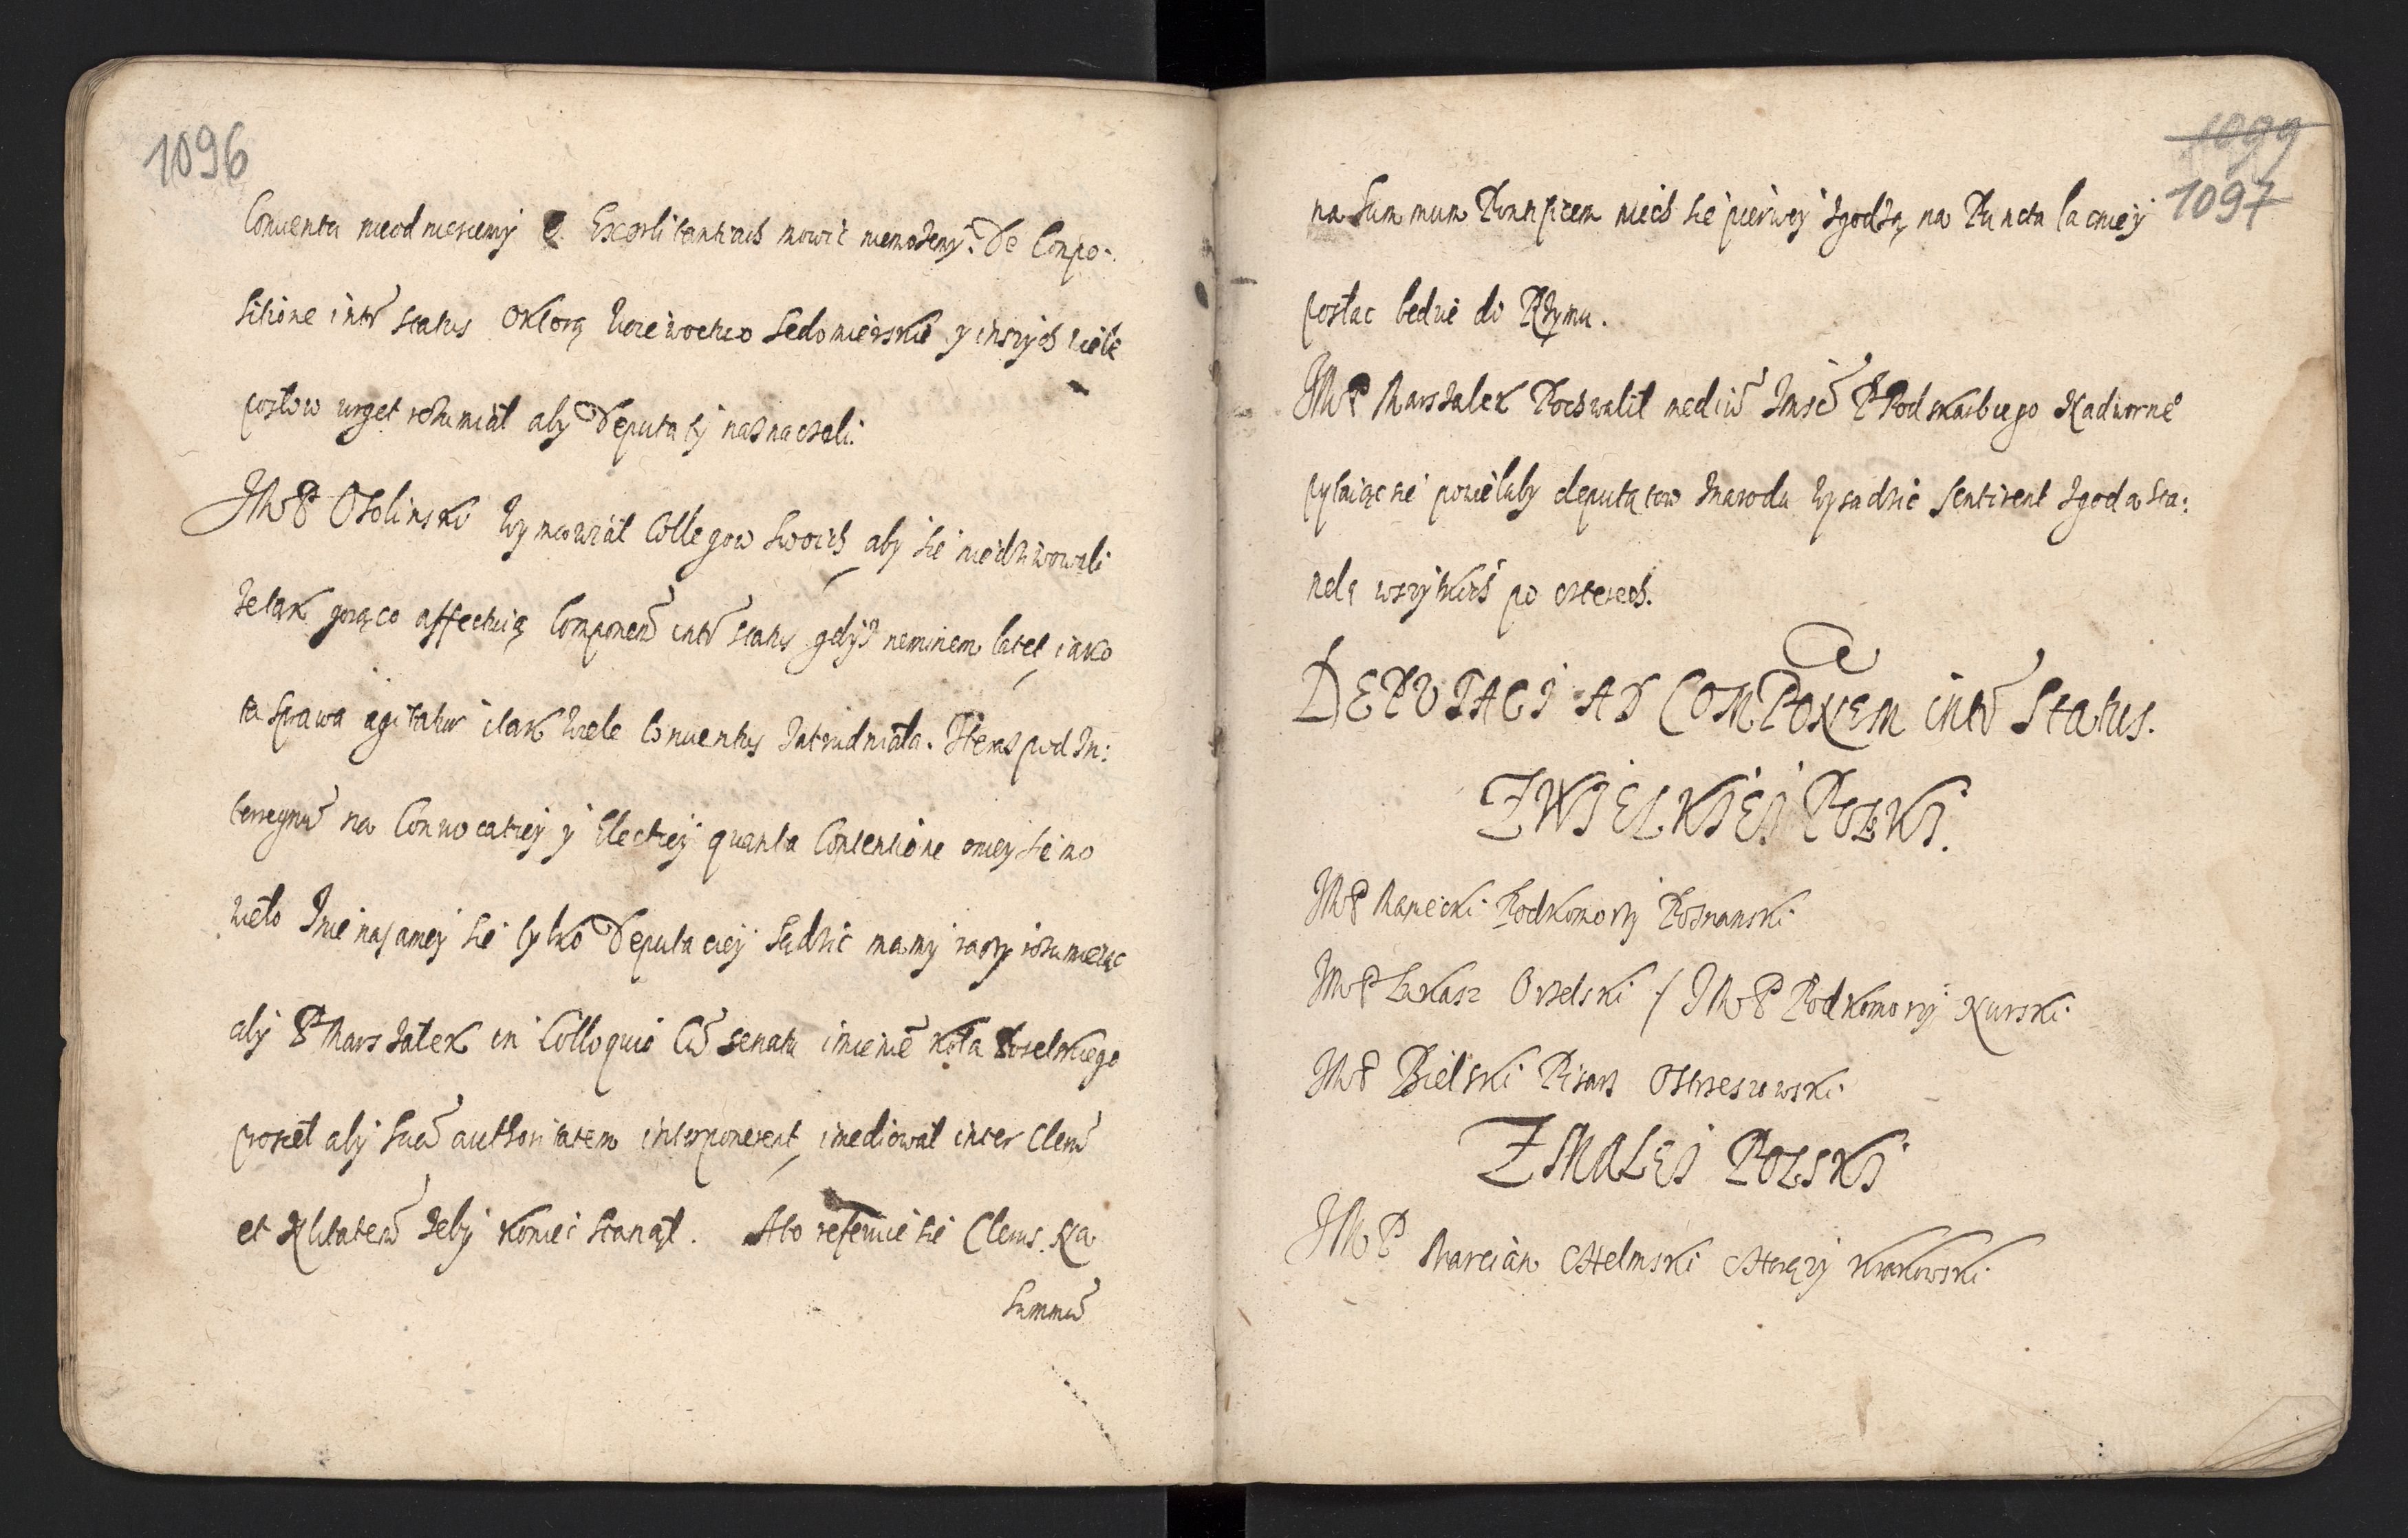 1096
Conuentu nieodniesiemy o Exorbitantiach mowić niemozemy. De Conpo-
sitione intr status oktorą Woiewoctwo Sedomierskie y inszych wiele
posłow urget rozumiał aby Deputaty naznaczali.
JMP Osolinski wymawiał Collegow swoich aby się niedziwowali
ze tak gorąco affectuią Componem intr status gdyz neminem latet iako
ta sprawa agitatur i tak wiele Conuentus zatrudniała. Teraz pod In:
terregnu na Conuocatiey y Electiey quanta Contentione oniey się mo
wieło Inie na samey się tylko Deputaciey sadzić mamy raczy rozumieiąc
aby P Marszałek in Colloquio Cu senatu imienie koła Poselskiego
prosieł aby sua authoritatem interponerent, imediował inter Cleru
et Nlitatem zeby koniec stanął. A bo referuie się Clerus. Na
Summu
1099
1097
na Summum Pontificem niech się pierwey zgodzą na Puncta lacniey
posłac bedzie do Rzymu.
JMP Marszalek Pochwalił mediu Imsci P Podskarbiego Nadworne
pytaiąc sie powielaby deputatow znarodu wysadzić sentirent zgoda sta:
nela wszytkich po czterech.
DEPUTACI AD COMPONEM intr Status.
Z WIELKIEI POLSKI.
JMP Manieцki Podkomorzy Poznanski
JMP Lukasz Orzelski / JMP Podkomorzy Nurski
JMP Bielski Pisarz Ostrzeszowski
Z MALEI POLSKI
JMP Marcian CHelmski CHorązy Krakowski